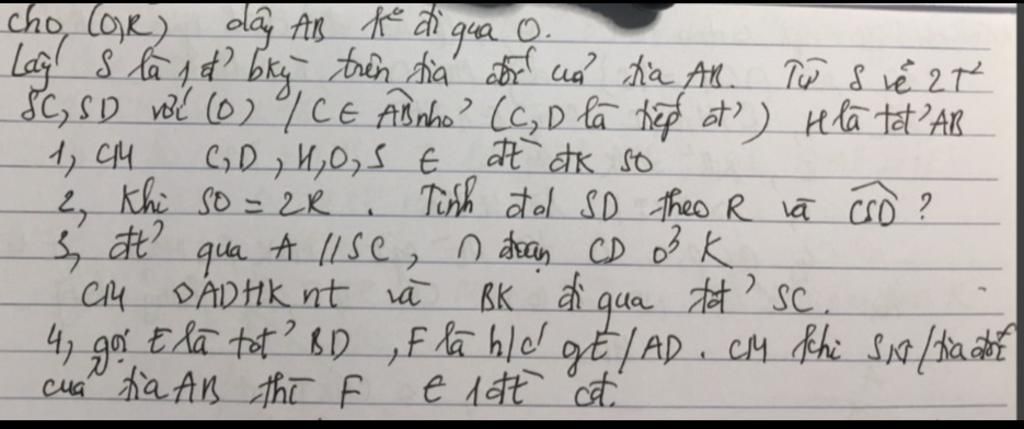 cho (O,R) dây AB k° đi qua O.
Lấy S là 1 đ' bkỳ trên tia đối của tia AB. Từ S vẽ 2T²
SC, SD với (O) / C ∈ AB nhỏ (C, D là tiếp đ') H là tđ' AB
1, CM C, D, H, O, S ∈ đt đk SO
2, Khi SO = 2R. Tính độ dài SD theo R và CSD ?
3, đt' qua A // SC, ∩ đoạn CD ở K
CM ◊ADHK nt và BK đi qua tđ' SC.
4, gọi E là tđ' BD, F là h/c' E / AD. CM khi S / tia đối
của tia AB thì F ∈ 1 đt cđ.